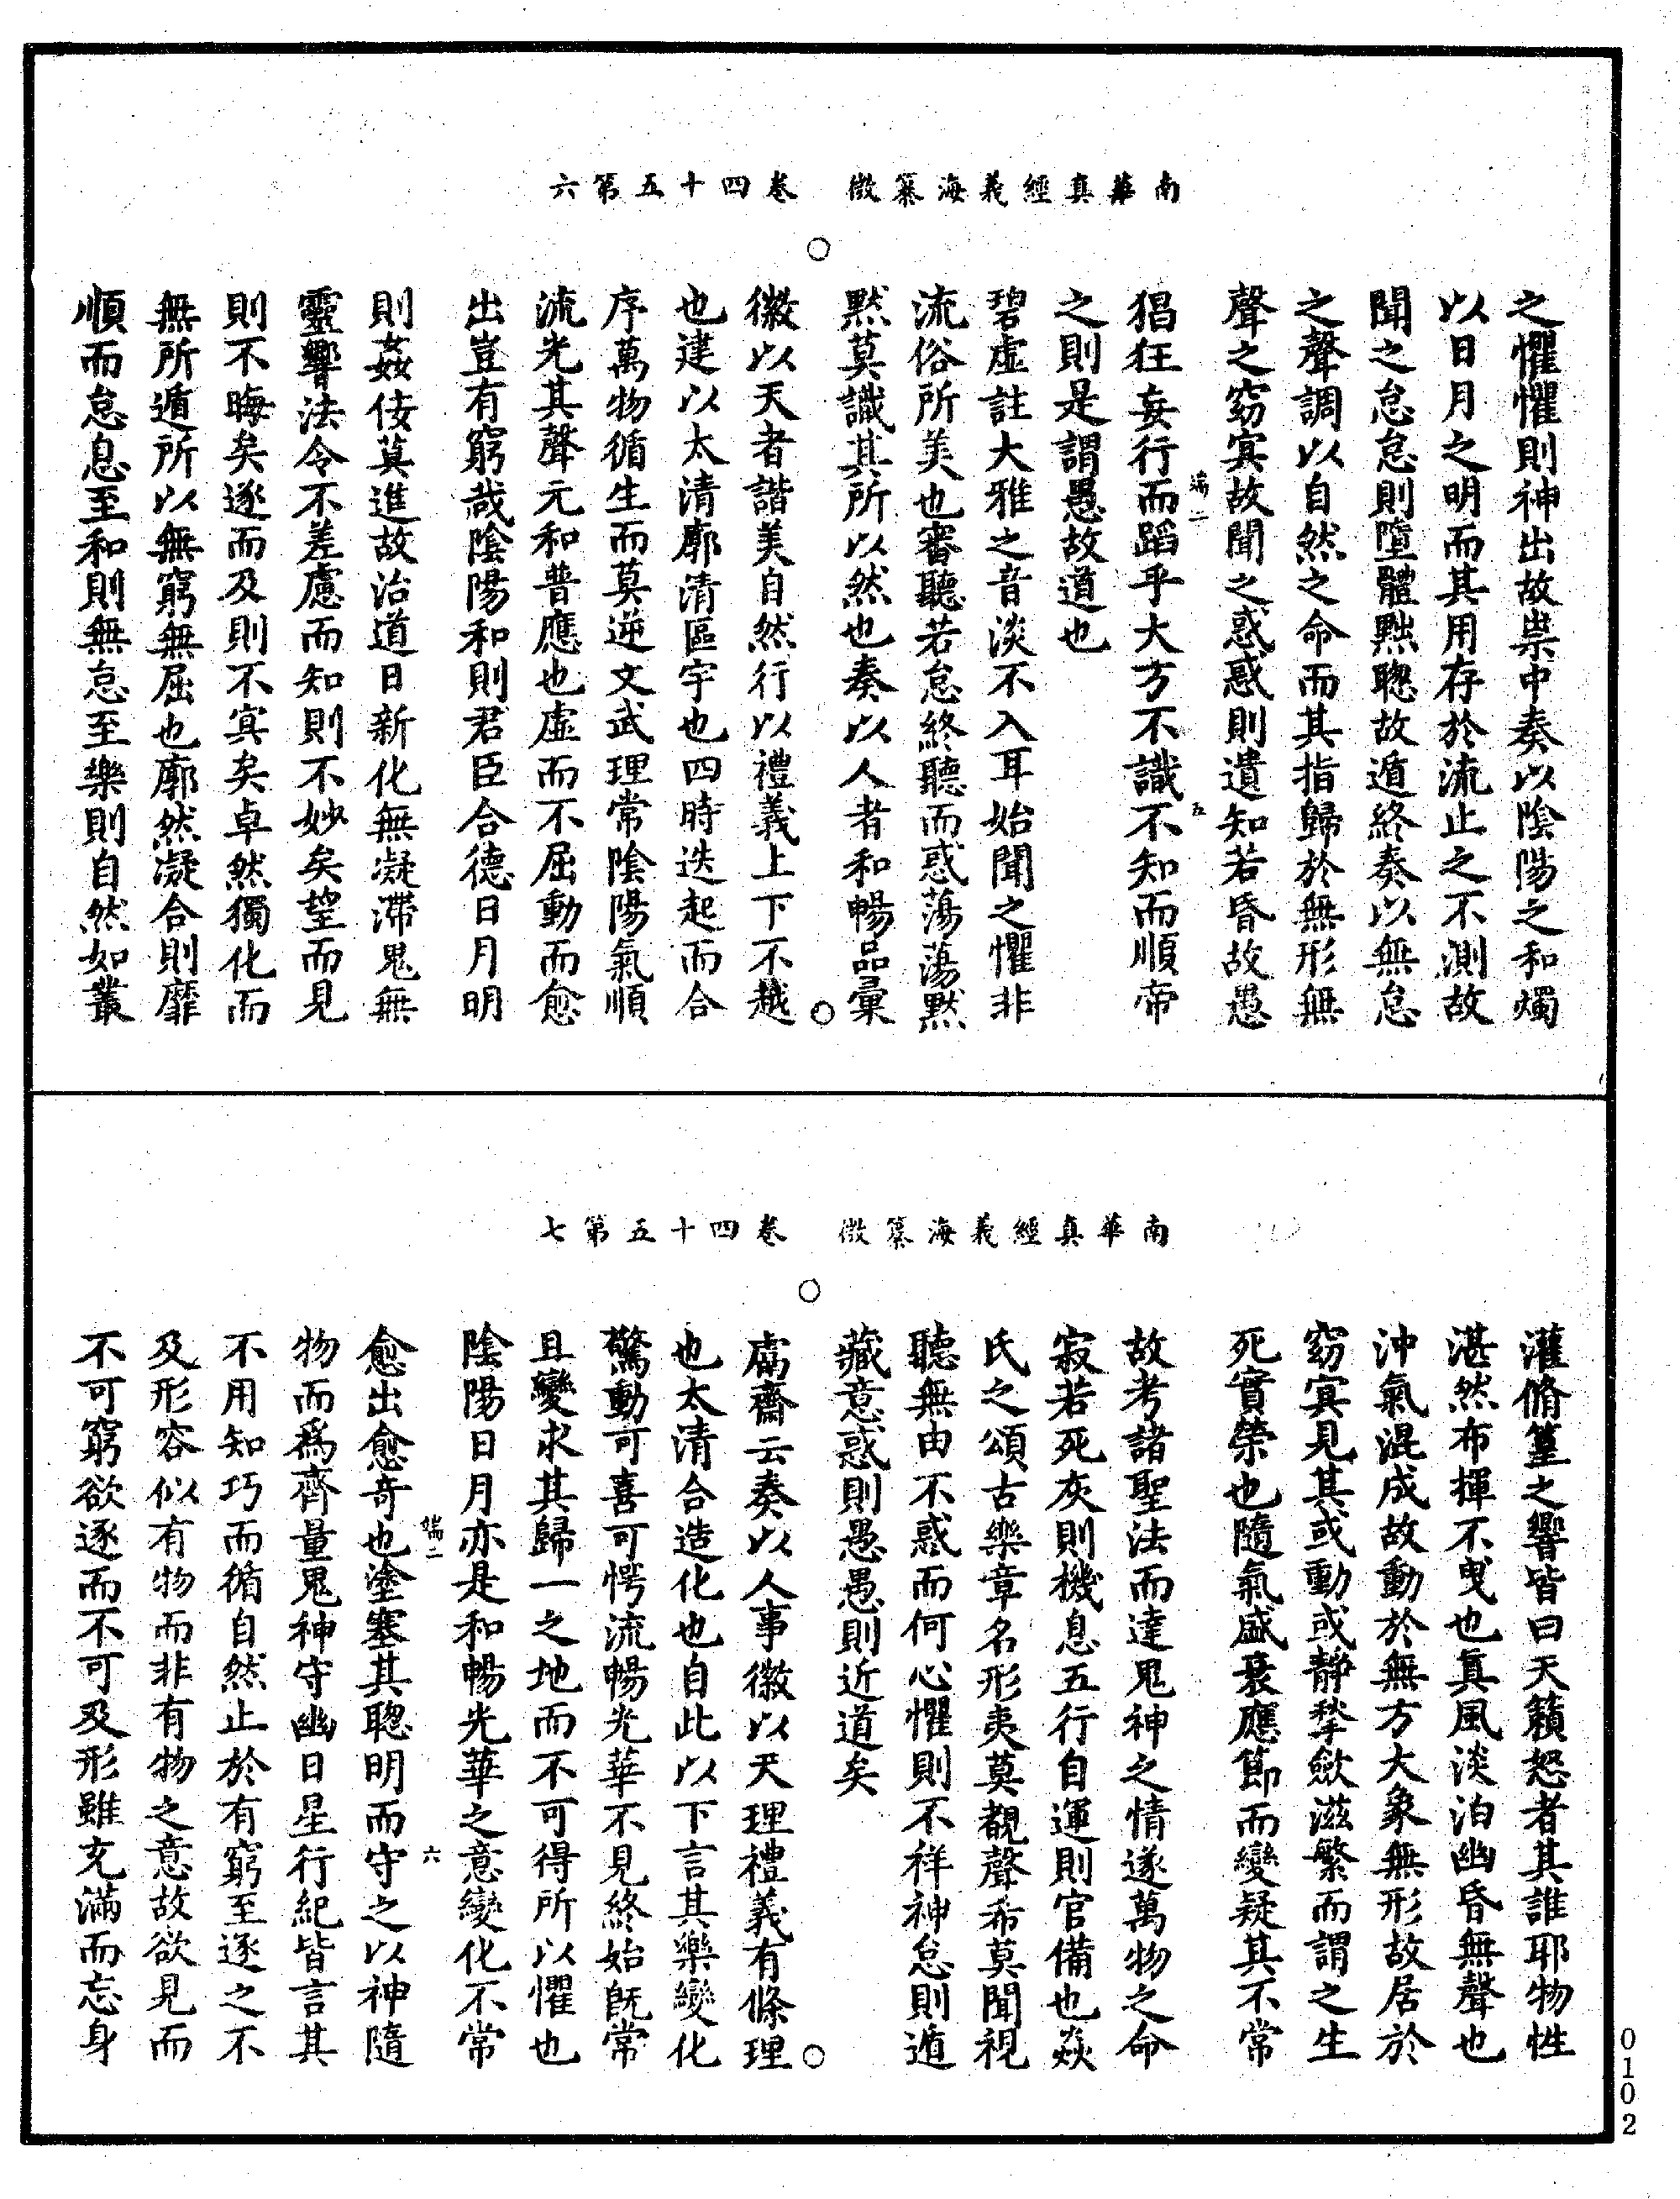 南華真經義海纂微　卷四十五第六
之懼懼則神出故祟中奏以陰陽之和燭
以日月之明而其用存於流止之不測故
聞之怠怠則墮體黜聰故遁終奏以無怠
之聲調以自然之命而其指歸於無形無
聲之窈冥故聞之惑惑則遺知若昏故愚
端二　五
猖狂妄行而蹈乎大方不識不知而順帝
之則是謂愚故道也
碧虛註大雅之音淡不入耳始聞之懼非
流俗所美也審聽若怠終聽而惑蕩蕩默
默莫識其所以然也奏以人者和暢品彙
徽以天者諧美自然行以禮義上下不越
也建以太清廓清區宇也四時迭起而合
序萬物循生而莫逆文武理常陰陽氣順
流光其聲元和普應也虛而不屈動而愈
出豈有窮哉陰陽和則君臣合德日月明
則姦佞莫進故治道日新化無凝滯鬼無
靈響法令不差慮而知則不妙矣望而見
則不晦矣逐而及則不冥矣卓然獨化而
無所遁所以無窮無屈也廓然凝合則靡
順而怠息至和則無怠至樂則自然如叢
南華真經義海纂微　卷四十五第七
灌脩篁之響皆曰天籟怒者其誰耶物性
湛然布揮不曳也真風淡泊幽昏無聲也
沖氣混成故動於無方大象無形故居於
窈冥見其或動或靜揫斂滋繁而謂之生
死實榮也隨氣盛衰應節而變疑其不常
故考諸聖法而達鬼神之情遂萬物之命
寂若死灰則機息五行自運則官備也焱
氏之頌古樂章名形夷莫覩聲希莫聞視
聽無由不惑而何心懼則不祥神怠則遁
藏意惑則愚愚則近道矣
鬳齋云奏以人事徽以天理禮義有條理
也太清合造化也自此以下言其樂變化
驚動可喜可愕流暢光華不見終始既常
且變求其歸一之地而不可得所以懼也
陰陽日月亦是和暢光華之意變化不常
端二　六
愈出愈奇也塗塞其聰明而守之以神隨
物而爲齊量鬼神守幽日星行紀皆言其
不用知巧而循自然止於有窮至逐之不
及形容似有物而非有物之意故欲見而
不可窮欲逐而不可及形雖充滿而忘身
0102